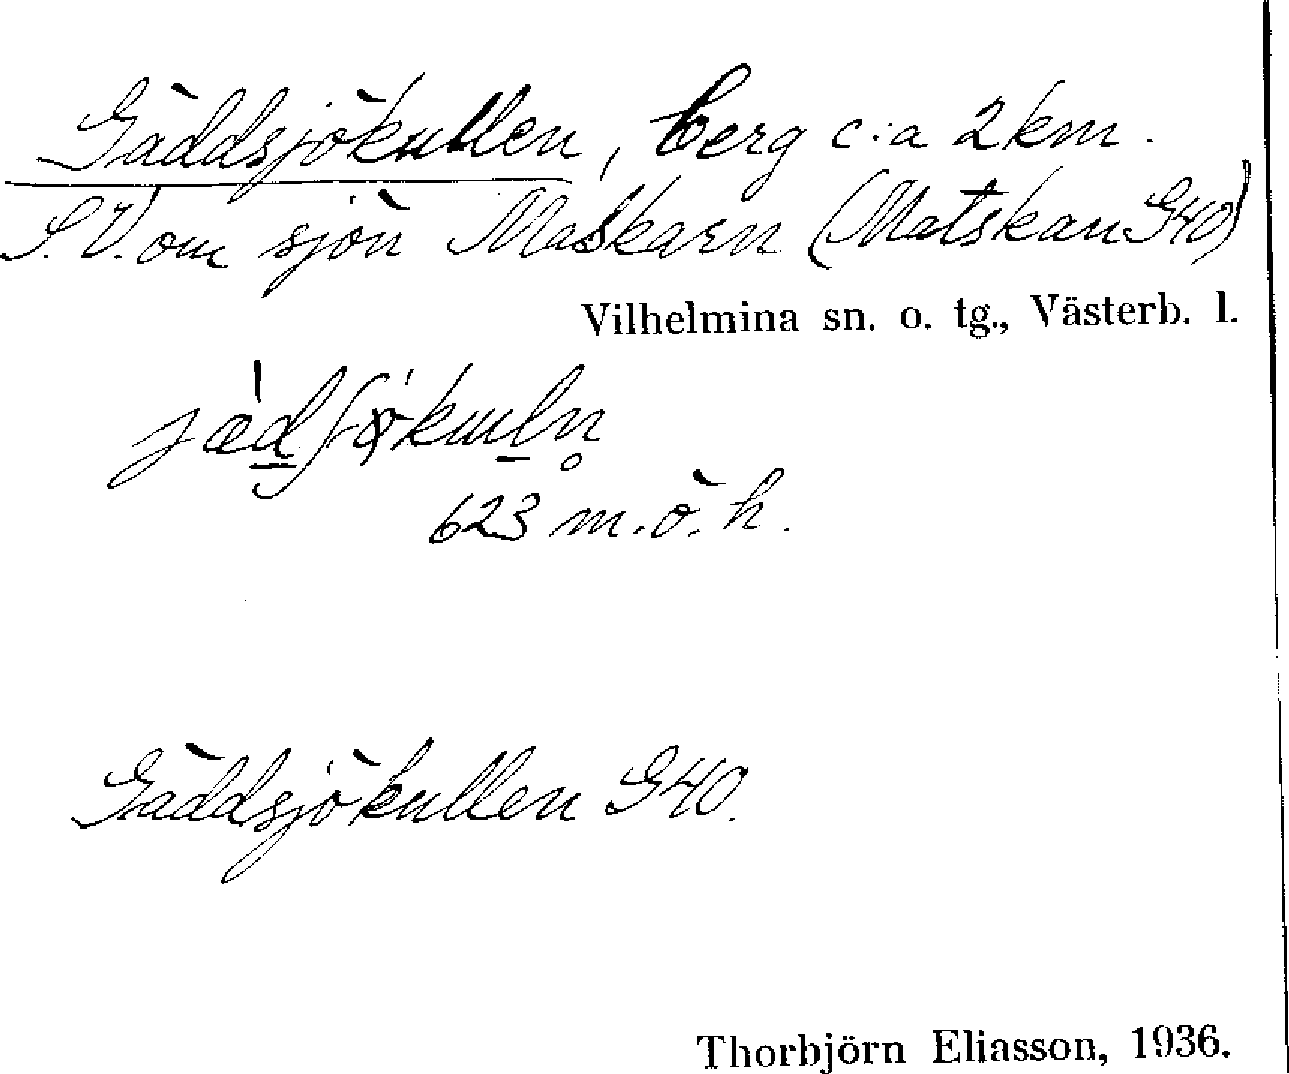 Gäddsjökullen, berg c:a 2 km.
S.V. om sjön Maskarn (Matskan G40)
Vilhelmina sn. o. tg., Västerb. l.
623 m.ö.h.
Gäddsjökullen G40.
Thorbjörn Eliasson, 1936.